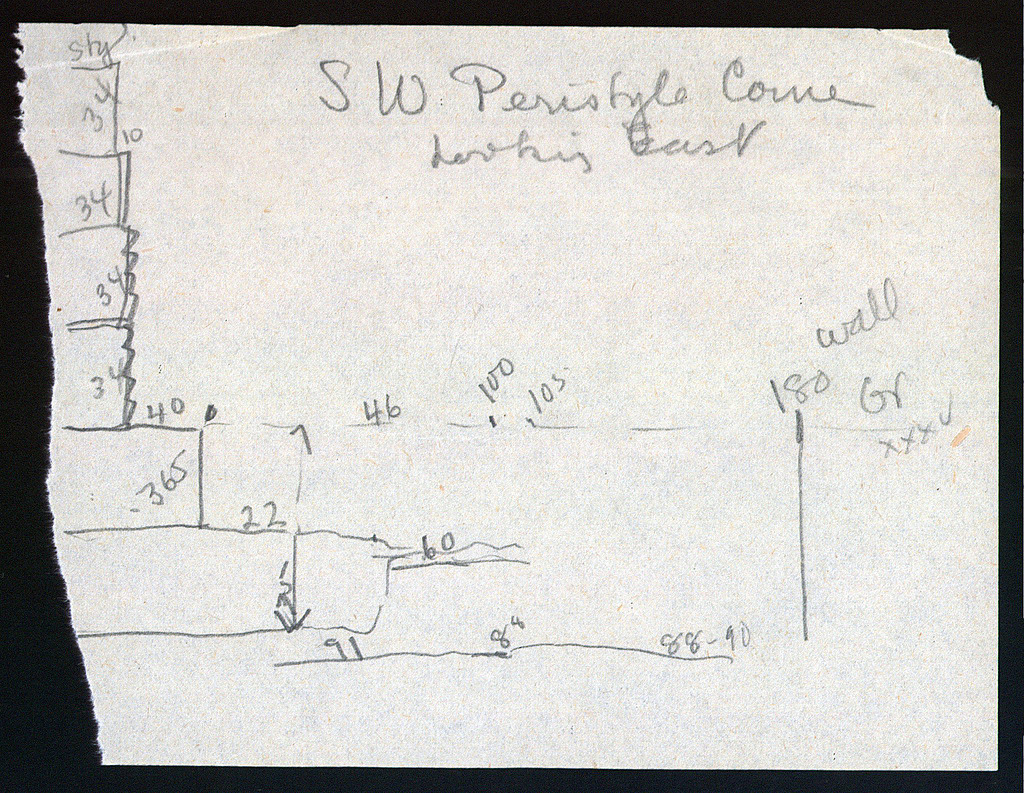 sty
S W Peristyle Corne
Looking East
34
10
34
34
34
wall
100
105
180
Gr
40
46
xxx
-365
22
60
91
88
88-90